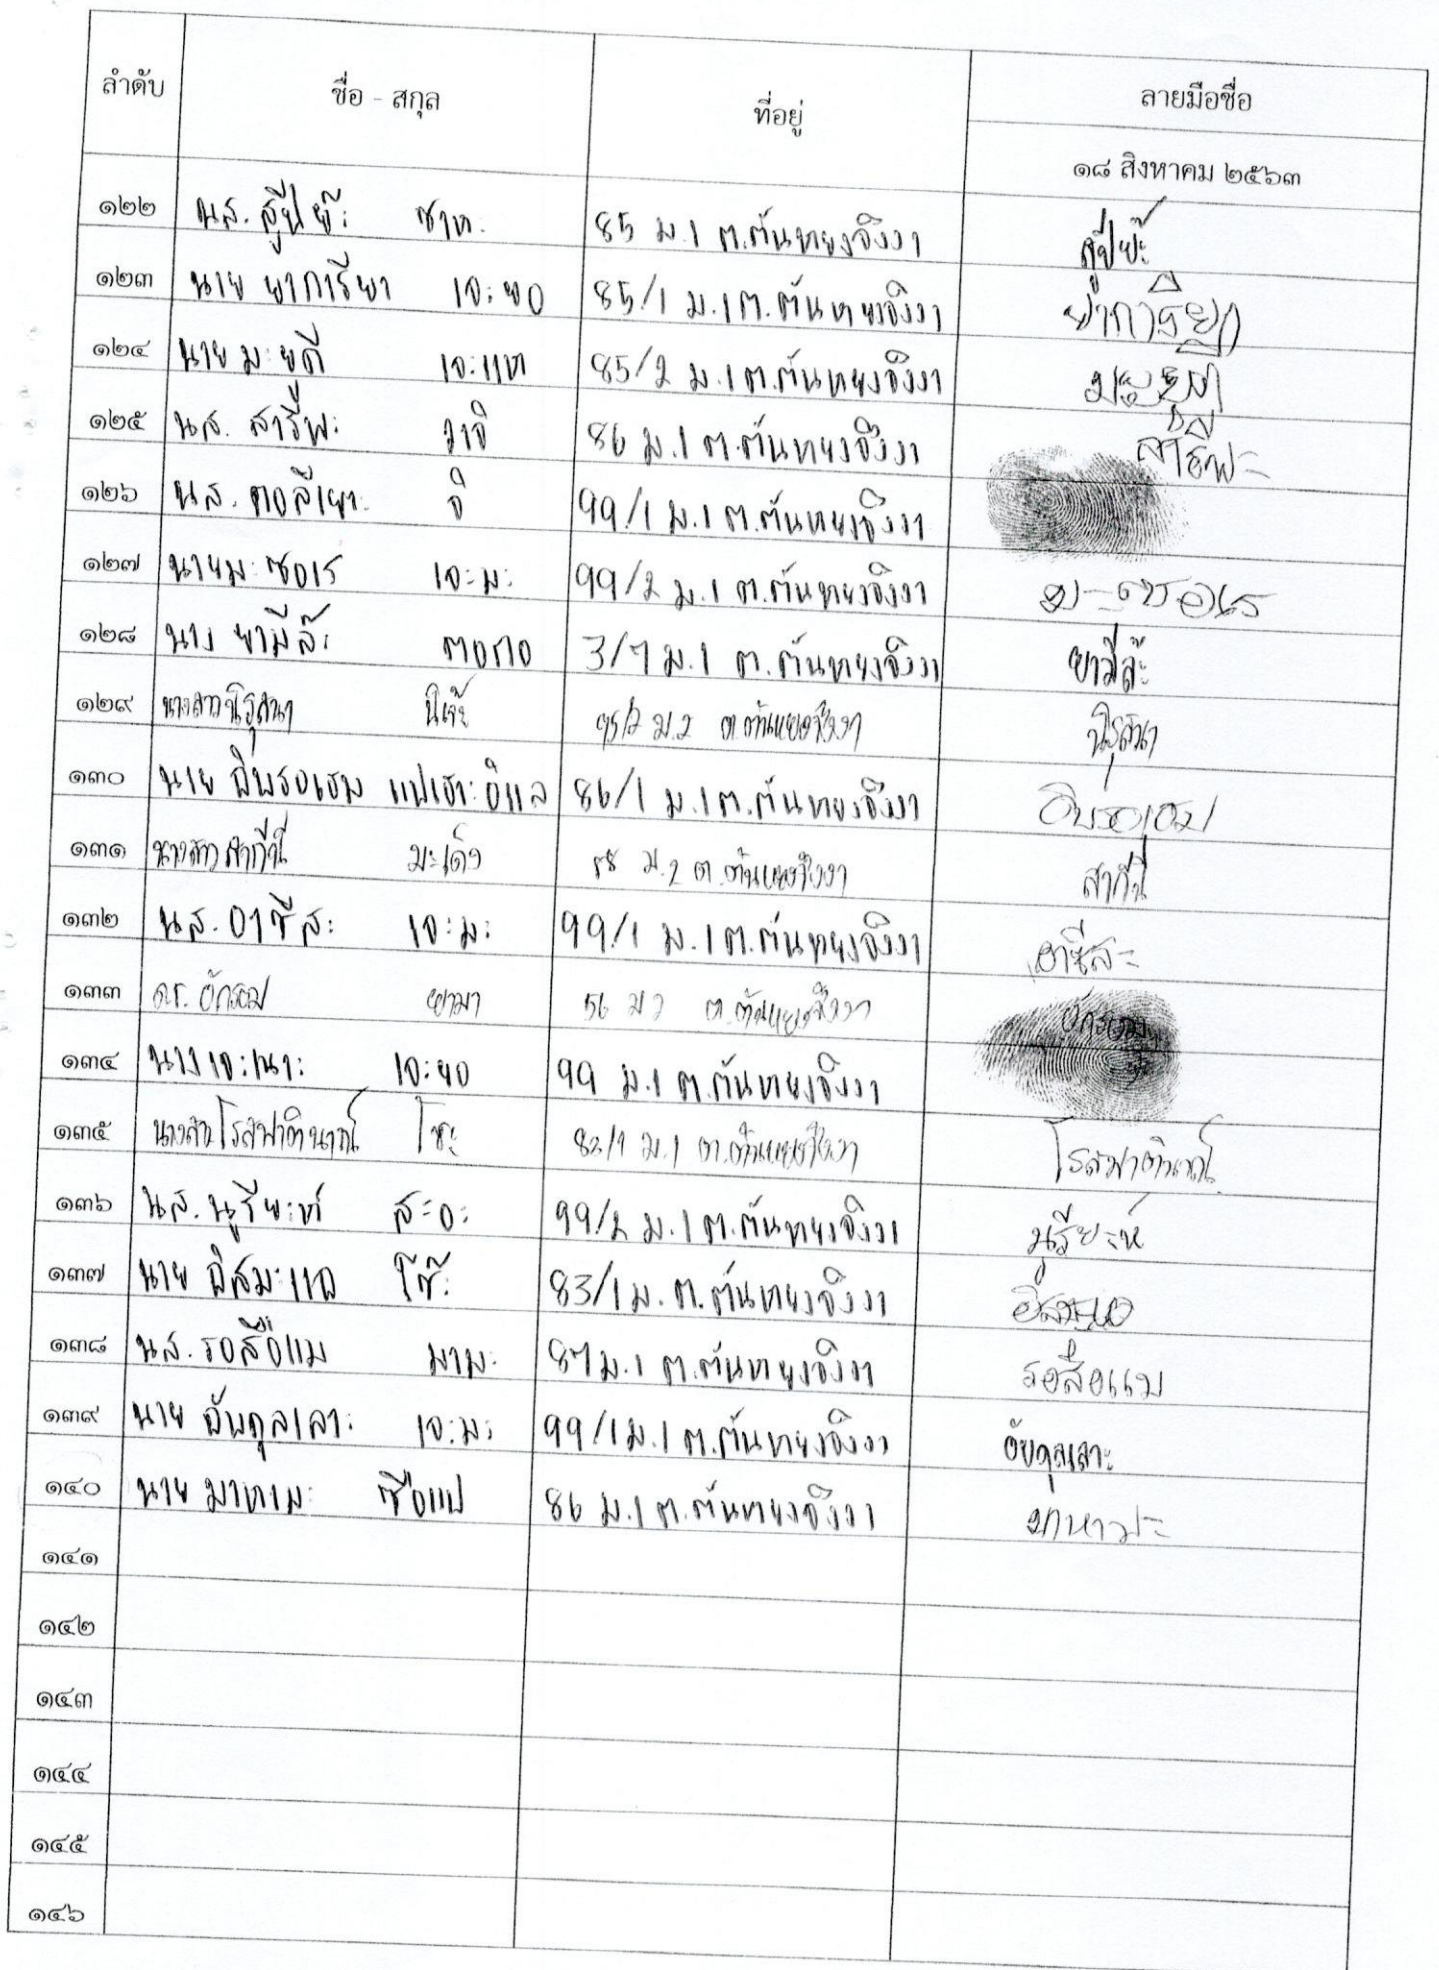 ลำดับ ชื่อ - สกุล ที่อยู่ ลายมือชื่อ
๑๘ สิงหาคม ๒๕๖๓
๑๒๒ นส. สูปียะ๊ ซาห. 85 ม.1 ต.ตันหยงจึงงา สูปียะ๊
๑๒๓ นาย ยาการียา เจะยอ 85/1 ม.1 ต.ตันหยงจึงงา ยาการียา
๑๒๔ นาย มะยดี เจะแห 85/2 ม.1 ต.ตันหยงจึงงา
๑๒๕ นส. สารีพะ วาจิ 86 ม.1 ต.ตันหยงจึงงา สารีพะ
๑๒๖ นส. จิ 99/1 ม.1 ต.ตันหยงจึงงา
๑๒๗ นายมะซอเร เจะมะ 99/2 ม.1 ต.ตันหยงจึงงา มะซอเร
๑๒๘ นาง ยามีล๊ะ 3/7 ม.1 ต.ตันหยงจึงงา ยามีล๊ะ
๑๒๙ นางสาวนิรุสนา ม.2 ต.ตันหยงจึงงา นิรุสนา
๑๓๐ นาย อิบรอเฮม แปเฮาะอิแล 86/1 ม.1 ต.ตันหยงจึงงา อิบรอเฮม
๑๓๑ นางสาว สากีนี มะเด็ง ม.2 ต.ตันหยงจึงงา สากีนี
๑๓๒ นส. อาซีสะ เจะมะ 99/1 ม.1 ต.ตันหยงจึงงา อาซีสะ
๑๓๓ ด.ช. อักรอม ยามา 56 ต.ตันหยงจึงงา อักรอม
๑๓๔ นางเจะเนาะ เจะยอ 99 ม.1 ต.ตันหยงจึงงา
๑๓๕ นางสาวโรสฟาตินาถ์ โซะ 82/1 ม.1 ต.ตันหยงจึงงา โรสฟาตินาถ์
๑๓๖ นส. นูรียะห์ สะอะ 99/2 ม.1 ต.ตันหยงจึงงา นูรียะห์
๑๓๗ นาย อิสมะแอ โซ๊ะ 83/1 ม. ต.ตันหยงจึงงา อิสมะแอ
๑๓๘ นส. รอสือแม มามะ 87 ม.1 ต.ตันหยงจึงงา รอสือแม
๑๓๙ นาย อับดุลเลาะ เจะมะ 99/1 ม.1 ต.ตันหยงจึงงา อับดุลเลาะ
๑๔๐ นาย มาหามะ ซือแป 86 ม.1 ต.ตันหยงจึงงา มาหามะ
๑๔๑
๑๔๒
๑๔๓
๑๔๔
๑๔๕
๑๔๖